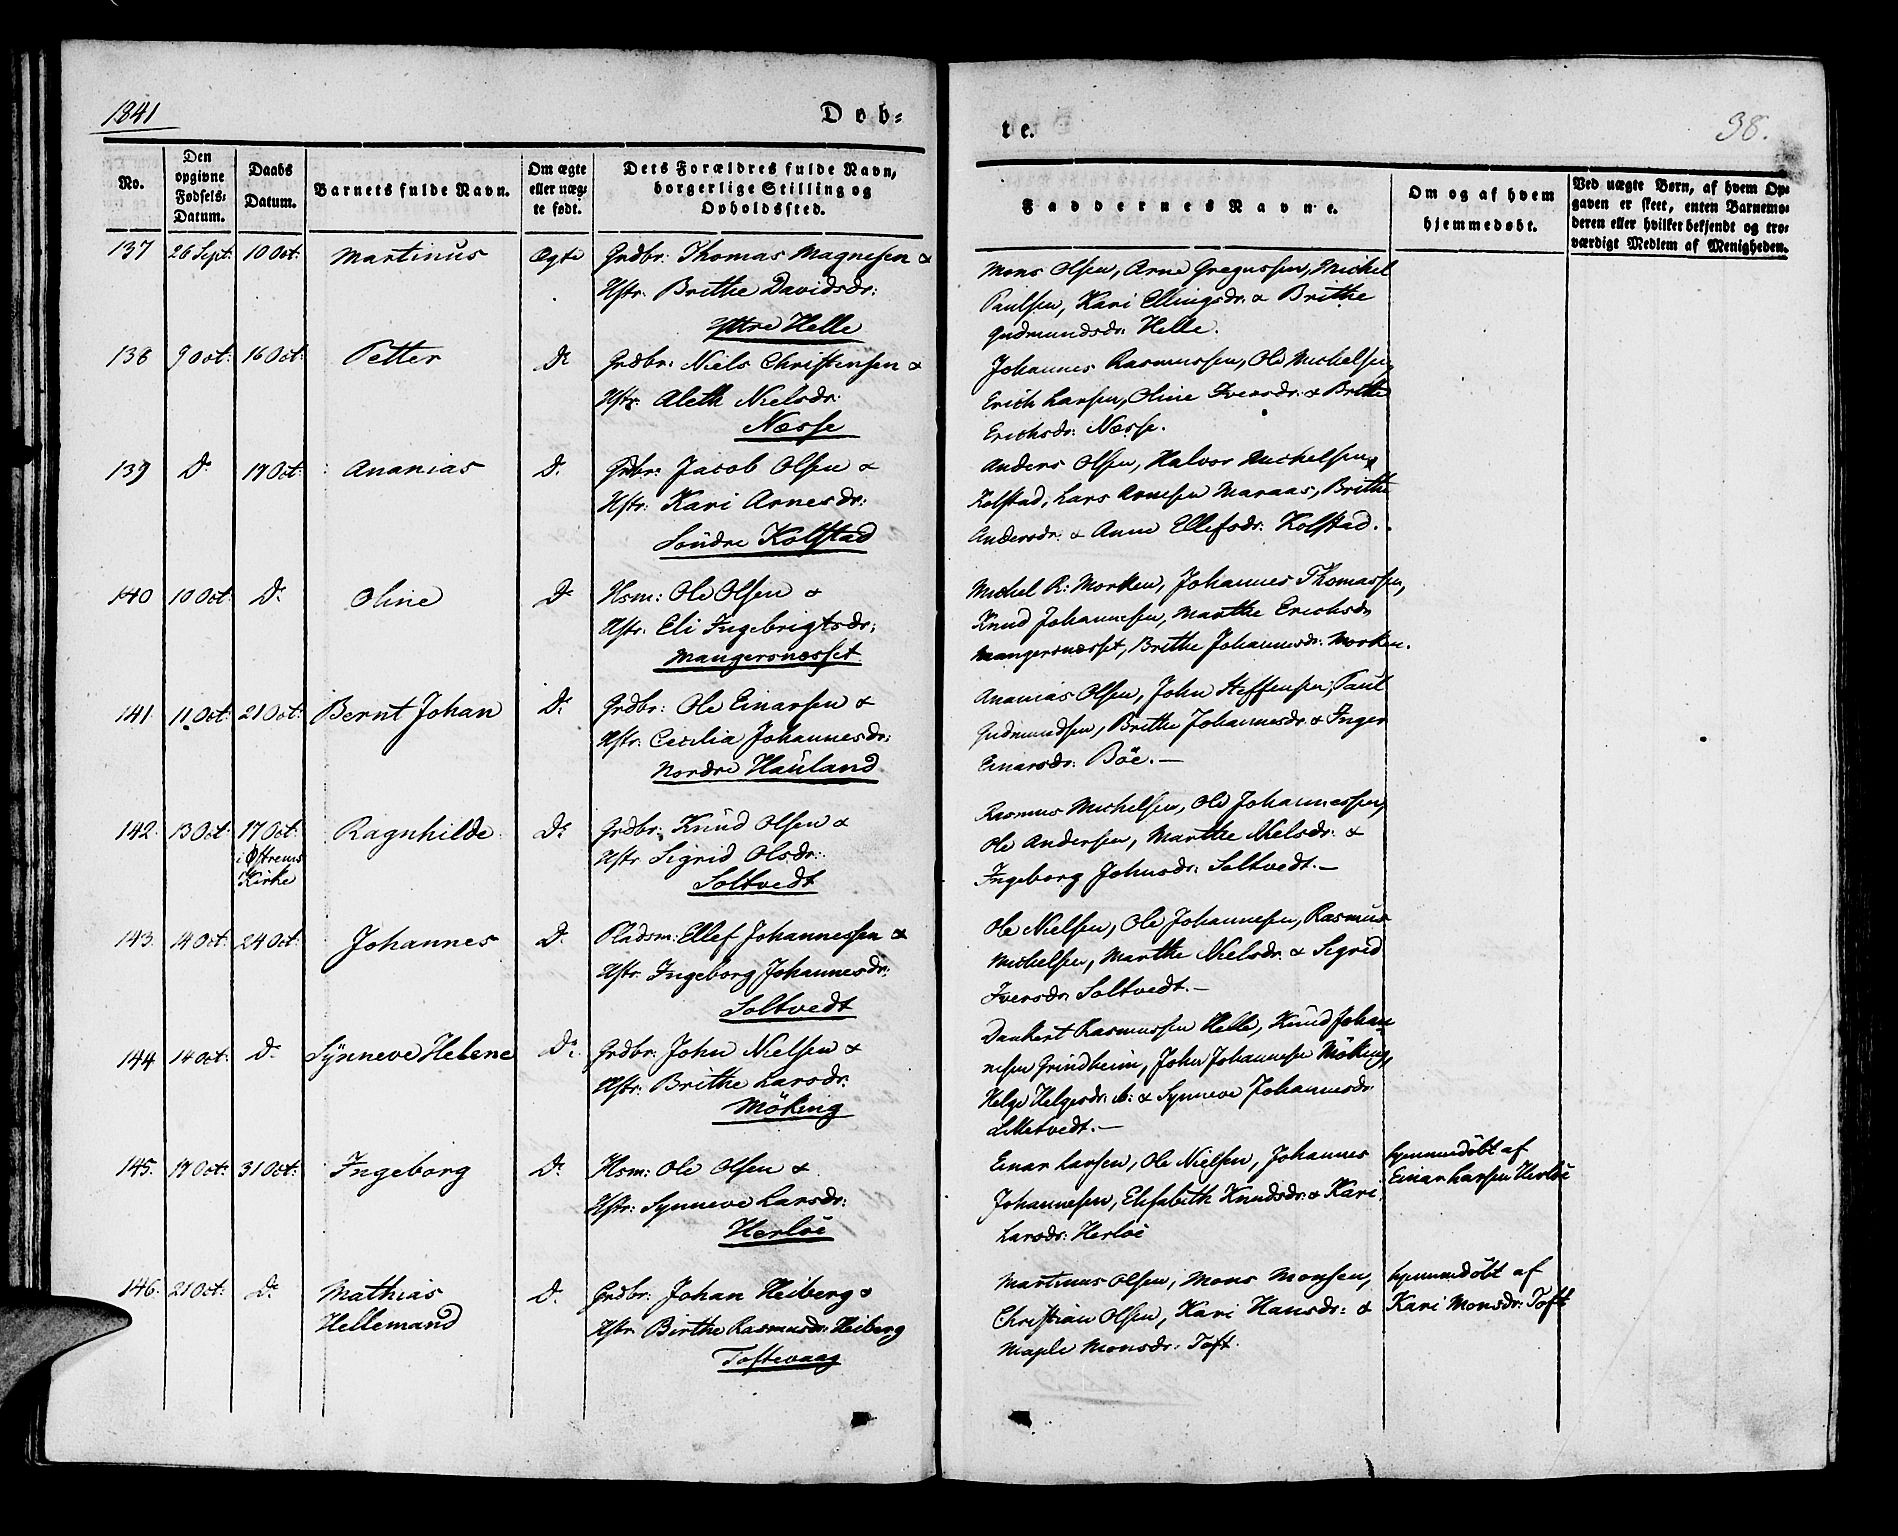 1841
Døb-
No.
Den opgivne Fødsels-Datum.
Daabs Datum.
Barnets fulde Navn.
Om ægte eller uægte født.
Dets Forældres fulde Navn, borgerlige Stilling og Opholdssted.
137 26 Sept: 10 Oct: Martinus Ægte Grdbr: Thomas Magnesen &
Hstr: Brithe Davidsdr:
Yttre Helle
138 9 Oct: 16 Oct: Petter Do Grdbr: Niels Christensen &
Hstr: Aleth Nielsdr:
Næsse
139 Do 17 Oct: Ananias Do Grdbr: Jacob Olsen &
Hstr: Kari Arnesdr:
Söndre Kolstad
140 10 Oct: Do Oline Do Hsm: Ole Olsen &
Hstr: Eli Ingebrigtsdr:
Mangersnæsset
141 11 Oct: 21 Oct: Bernt Johan Do Grdbr: Ole Einarsen &
Hstr: Cecilia Johannesdr:
Nordre Hauland
142 13 Oct: 17 Oct: Ragnhilde Do Grdbr: Knud Olsen &
i Østrems Hstr Sigrid Olsdr:
Kirke Soltvedt
143. 14 Oct: 24 Oct: Johannes Do Pladsm: Ellef Johannessen &
Hstr. Ingeborg Johannesdr:
Soltvedt
144 14 Oct: Do Synneve Helene Do Grdbr: John Nielsen &
Hstr: Brithe Larsdr:
Möking
145. 17 Oct: 31 Oct: Ingeborg Do Hsm: Ole Olsen &
Hstr: Synneve Larsdr:
Herlöe
146. 21 Oct: Do Mathias Do Grdbr: Johan Heiberg &
Hellemand Hstr Birthe Rasmusdr: Heiberg
Toftevaag
te.
38.
Faddernes Navne.
Om og af hvem hjemmedøbt.
Ved uægte Børn, af hvem Opgaven er skeet, enten Barnemoderen eller hvilket bekjendt og troværdigt Medlem af Menigheden.
Mons Olsen, Arne Gregussen, Michel
Paulsen, Kari Ellingsdr: & Brithe
Gudmundsdr: Helle.
Johannes Rasmussen, Ole Michelsen,
Erich Larsen, Oline Iversdr: & Brithe
Erichsdr: Næsse.
Anders Olsen, Halvor Michelsen
Kolstad, Lars Arnesen Maraas, Brithe
Andersdr: & Anne Ellefsdr: Kolstad.
Michel R: Morken, Johannes Thomassen,
Knud Johannesen, Marthe Erichsdr
Mangersnæsset, Brithe Johannesdr: Morken.
Ananias Olsen, John Steffensen, Paul
Gudmundsen, Brithe Johannesdr & Inger
Einarsdr: Böe. —
Rasmus Michelsen, Ole Johannessen,
Ole Andersen, Marthe Nielsdr: &
Ingeborg Johnsdr: Soltvedt. —
Ole Nielsen, Ole Johannesen, Rasmus
Michelsen, Marthe Nielsdr & Sigrid
Iversdr: Soltvedt. —
Dankert Rasmussen Helle, Knud Johan
nesen Grindheim, John Johannesen Möking,
Helge Helgesdr: & Synneve Johannesdr
Lilletvedt. —
Einar Larsen, Ole Nielsen, Johannes
Johannesen, Elisabeth Knudsdr: & Kari
Larsdr: Herlöe
hjemmedöbt af
Einar Larsen Herlöe
Martinus Olsen, Mons Monsen,
Christian Olsen, Kari Hansdr: &
Monsdr: Toft.
hjemmedöbt af
Kari Monsdr: Toft